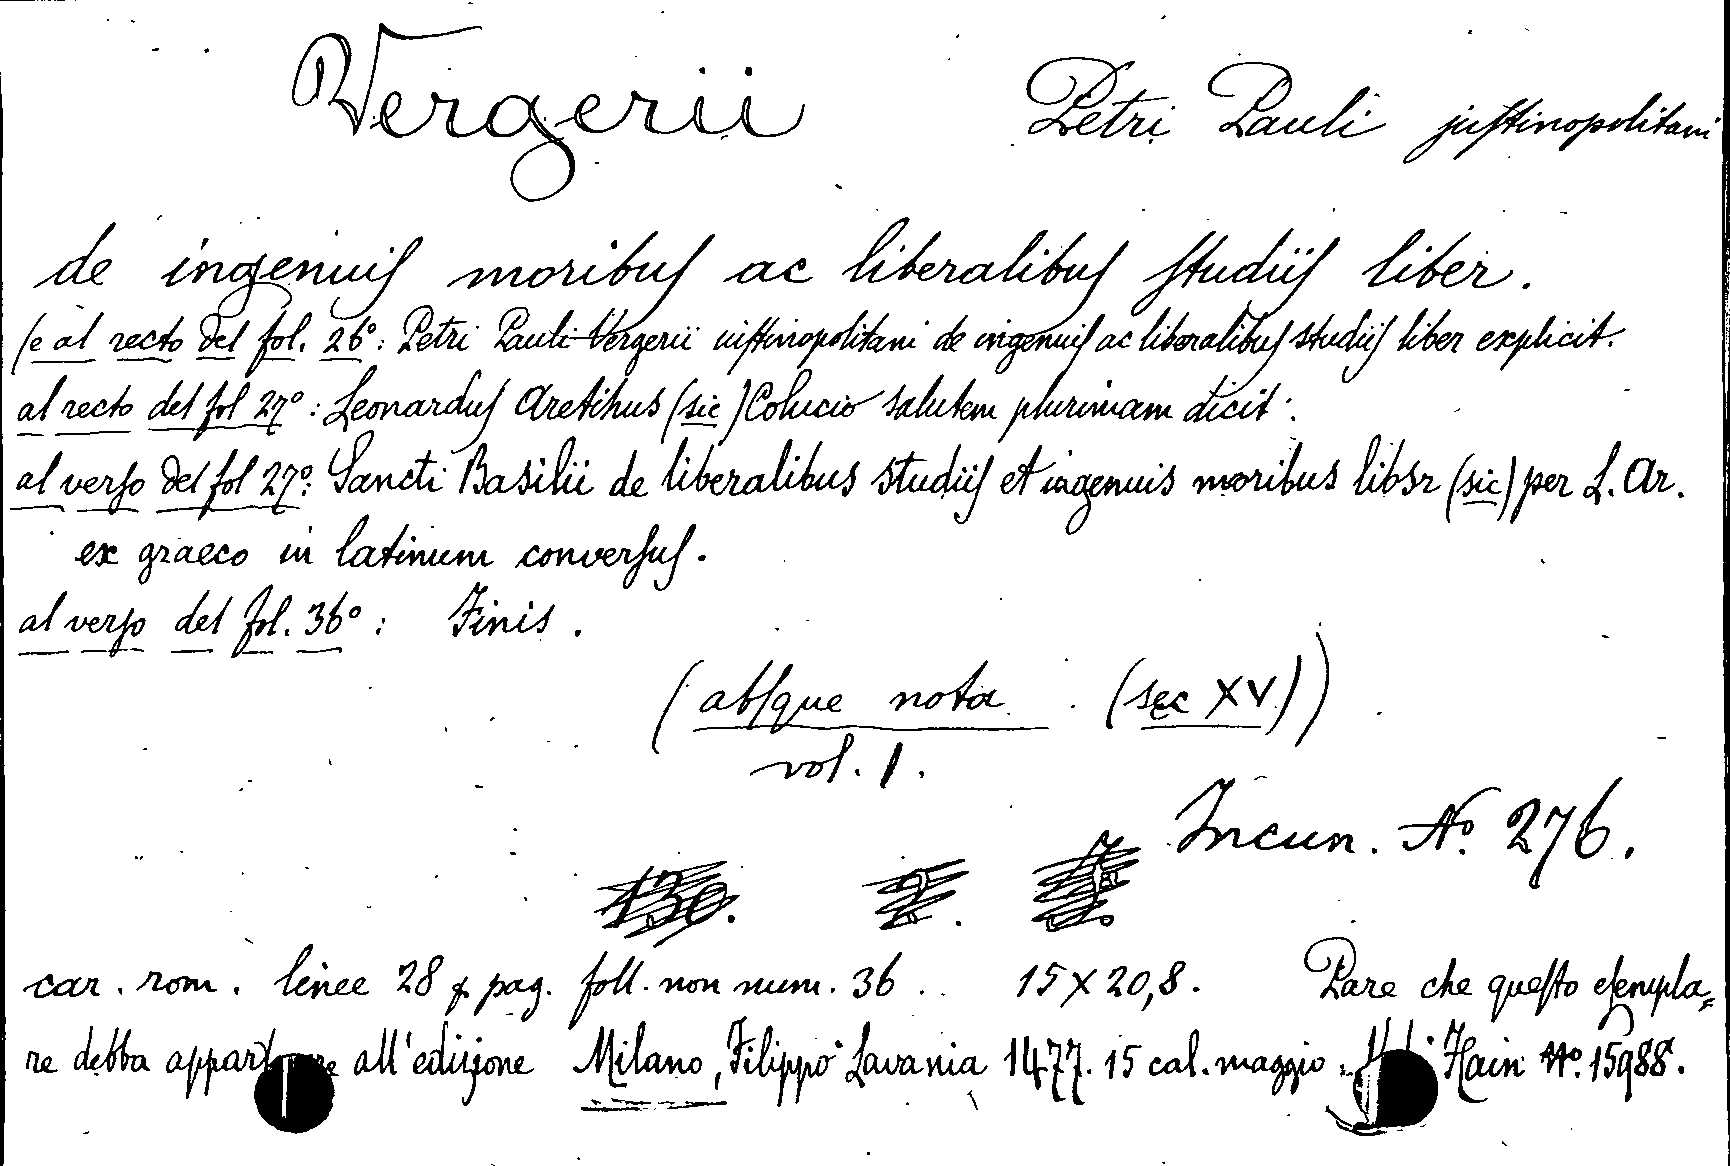 Vergerii Petri Pauli juſtinopolitani
de ingenuiſ moribuſ ac liberalibuſ ſtudiiſ liber.
(e al recto del fol. 26°: Petri Pauli Vergerii iuſtinopolitani de ingenuiſ ac liberalibuſ studiiſ liber explicit.
al recto del fol 27°: Leonarduſ Aretihus (sic) Colucio salutem plurimam dicit:.
al verſo del fol 27°: Sancti Basilii de liberalibus studiiſ et ingenuis moribus libsr (sic) per L. Ar.
ex graeco in latinum converſuſ.
al verſo del fol. 36°: Finis.
(abſque nota (sec XV))
vol. 1.
Incun. N° 276.
130. 2.
car. rom. linee 28 p pag. foll. non num. 36. 15 X 20,8. Pare che queſto eſempla=
re debba all'edizione Milano, Filippo Lavania 1477. 15 cal. maggio. Hain N° 15988.